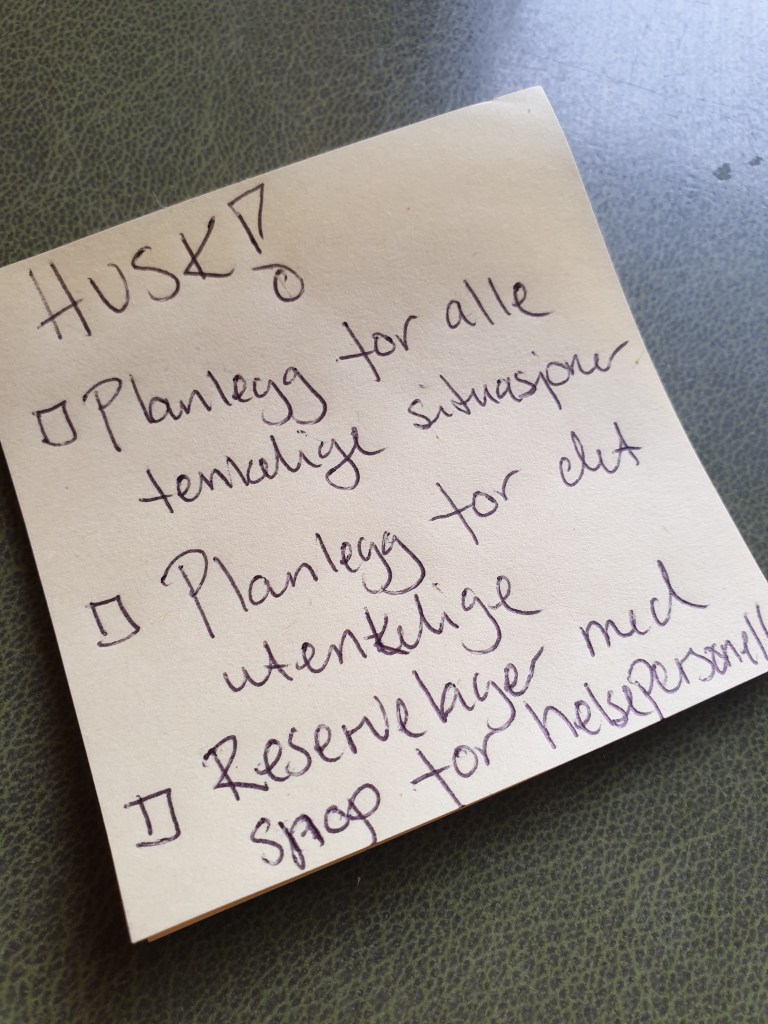 HUSK!
☐ Planlegg for alle
tenkelige situasjoner
☐ Planlegg for det
utenkelige
☐ Reservelager med
snop for helsepersonell